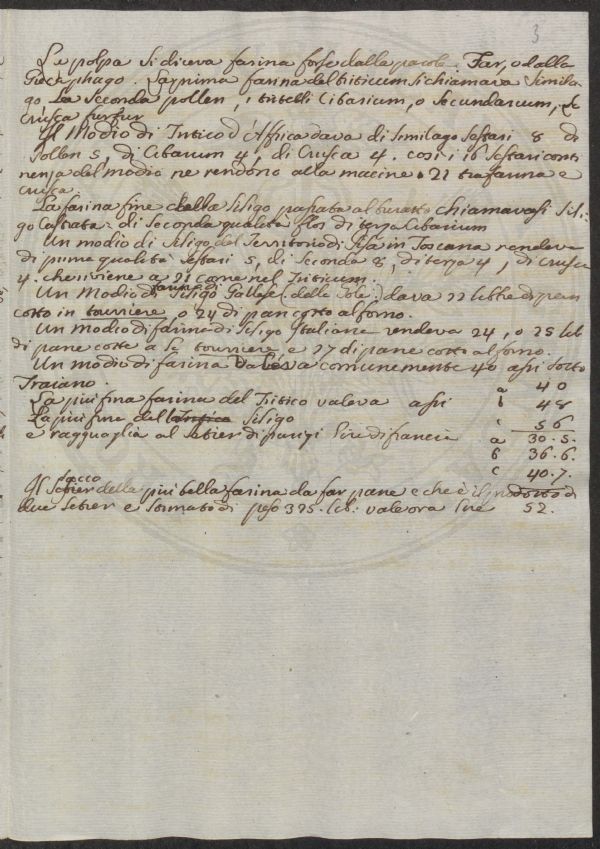 3
La polpa si diceva farina forse dalla parola Far, o dalla
Greca phago. La prima farina del triticum si chiamava Simila-
go, La seconda pollen, i tritelli Cibarium, o Secundarium, La
Crusca furfur
Il Modio di Tritico d'Affrica dava di Similago Sestari 8 di
Pollen 5, di Cibarium 4, di Crusca 4. così i 16 Sestari conti
nenza del modio ne rendono alla macine 21 tra farina e
crusca.
La farina fine della Siligo passata al buratto chiamavasi Sili-
go Castrata: di seconda qualità flos di terza Cibarium
Un modio di Siligo del Territorio di Pisa in Toscana rendeva
di prima qualità Sestari 5, di Seconda 8, di terza 4, di Crusca
4. che riviene a 21 come nel Triticum.
Un Modio di farina di Siligo Gallese (delle Gole) dava 22 libbre di pan
cotto in tourriere, o 24 di pan cotto al forno.
Un modio di farina di Siligo Italiana rendeva 24, o 25 lib
di pane cotto a la tourriere, e 27 di pane cotto al forno.
Un modio di farina Valeva comunemente 40 assi sotto
Traiano.
La più fina farina del Tritico valeva assi
a 40
b 48
La più fine del Siligo
c 56
e ragguaglia al Setier di parigi lire di francia
a 30.5.
b 36.6
c 40.7.
Il sacco della più bella farina da far pane e che è il prodotto di
due Setier e stimato di peso 325. lib: vale ora lire 52.